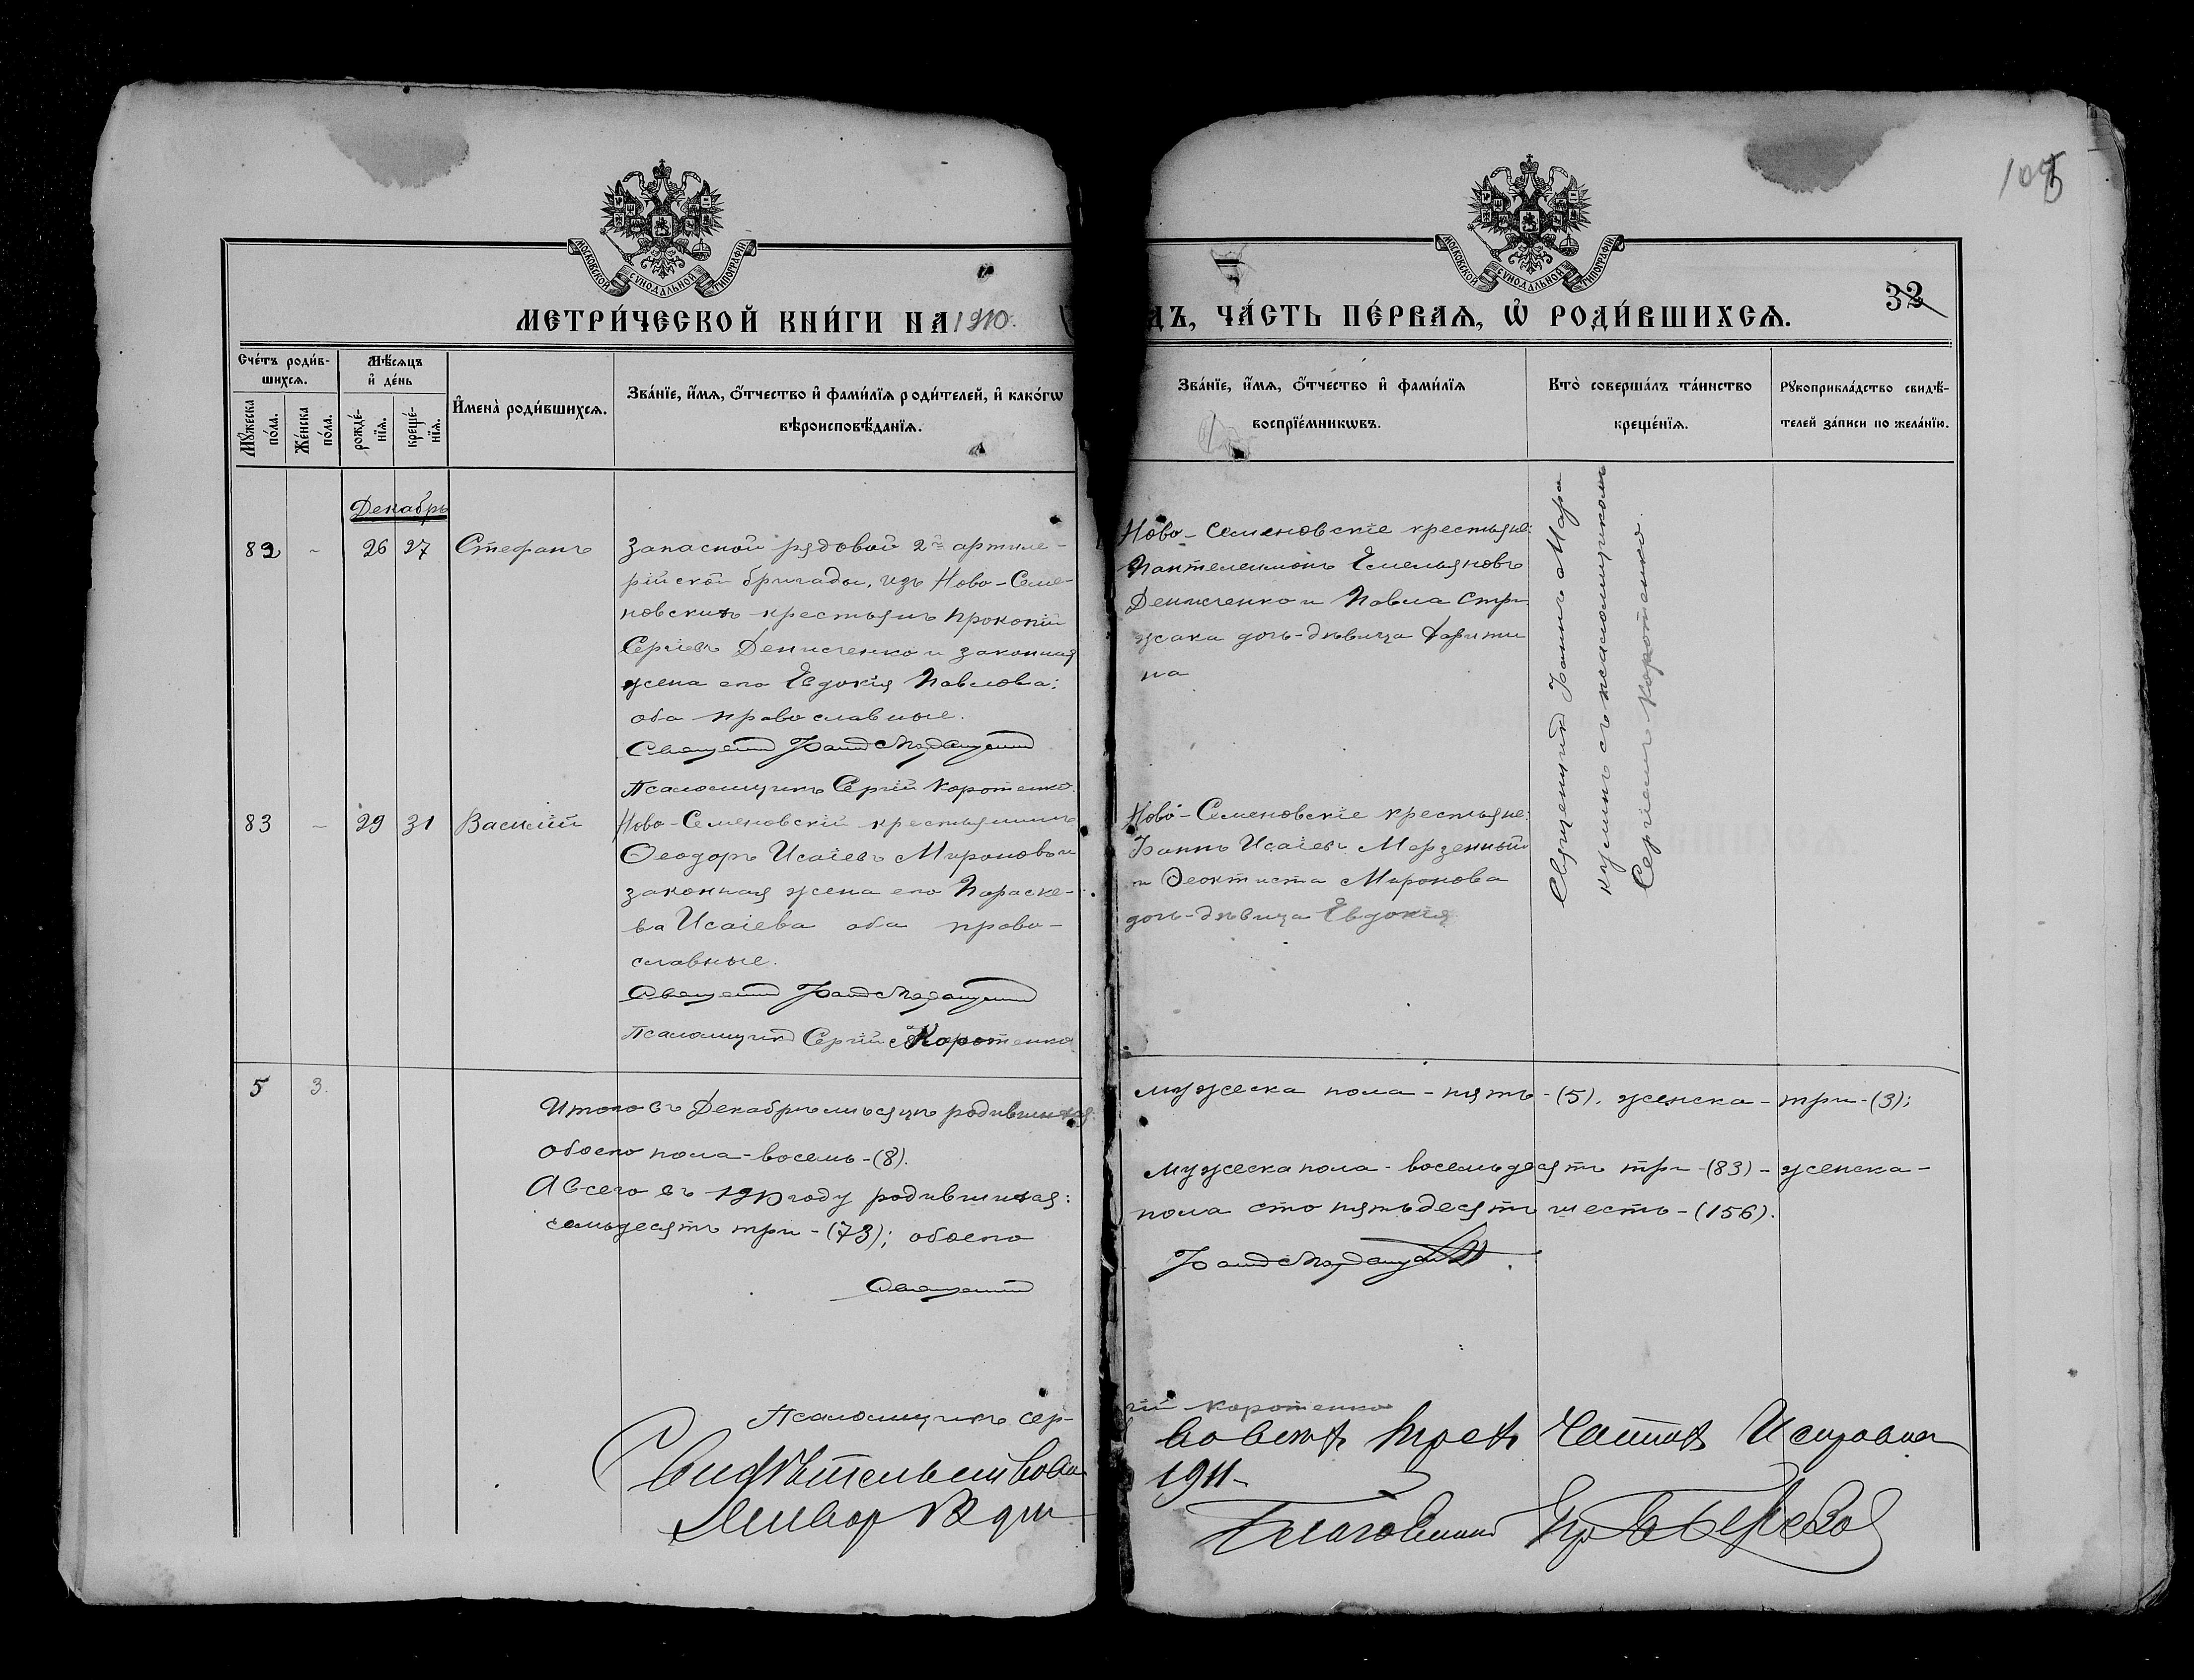 105
МОСКОВСКОЙ СУНОДАЛЬНОЙ ТИПОГРАФІИ
МОСКОВСКОЙ СУНОДАЛЬНОЙ ТИПОГРАФІИ
32
МЕТРИ́ЧЕСКОЙ КНИ́ГИ НА 1910.
ДЪ, ЧА́СТЬ ПЕ́РВАЯ, Ѡ҆ РОДИ́ВШИХСЯ.
Сче́тъ роди́в-
шихся.
Мꙋ́жеска
по́ла.
Же́нска
по́ла.
Мѣ́сяцъ
и҆ де́нь
рожде́-
нїя.
креще́-
нїя.
И҆мена̀ роди́вшихся.
Зва́нїе, и҆́мя, ѻ҆́тчество и҆ фами́лїя роди́телей, и҆ како́гѡ
вѣроисповѣ́данїя.
Зва́нїе, и҆́мя, ѻ҆́тчество и҆ фами́лїя
воспрїе́мникѡвъ.
Кто̀ соверша́лъ та́инство
креще́нїя.
Рꙋкоприкла́дство свидѣ́-
телей за́писи по жела́нїю.
Декабрь
82 - 26 27 Стефанъ
Запасной рядовой 2й артиле-
рійской бригады, изъ Ново-Семе-
новскихъ крестьянъ Прокопій
Сергіевъ Денисченко и законная
жена его Евдокія Павлова;
оба православные.
Священник Іоанн
Псаломщикъ Сергій Коротенко.
Ново-Семеновскіе крестьяне:
Пантелеимонъ Емельяновъ
Денисченко и Павла Стри
жака дочь-дѣвица Харити
на
Священник Іоаннъ Мара
кушинъ съ псаломщикомъ
Сергіемъ Коротенко.
83 - 29 31 Василій
Ново-Семеновскій крестьянинъ
Ѳеодоръ Исаіевъ Мироновъ и
законная жена его Параске-
ва Исаіева оба право-
славные.
Священник Іоанн
Псаломщик Сергій Коротенко
Ново-Семеновскіе крестьяне:
Іоаннъ Исаіевъ Мерзенный
и Ѳеоктиста Миронова
дочь-дѣвица Евдокія
5 3.
Итого въ Декабрѣ мѣсяцѣ родившихся:
мужеска пола - пять - (5), женска - три - (3);
обоего пола - восемь - (8).
А всего въ 1910 году родившихся:
мужеска пола - восемьдесятъ три - (83) - женска -
семьдесятъ три - (73); обоего
пола сто пятьдесятъ шесть - (156).
Священник
Іоанн
Псаломщикъ Сер-
гій Коротенко
Свидѣтельствова
Январ дня
1911
Благочинный